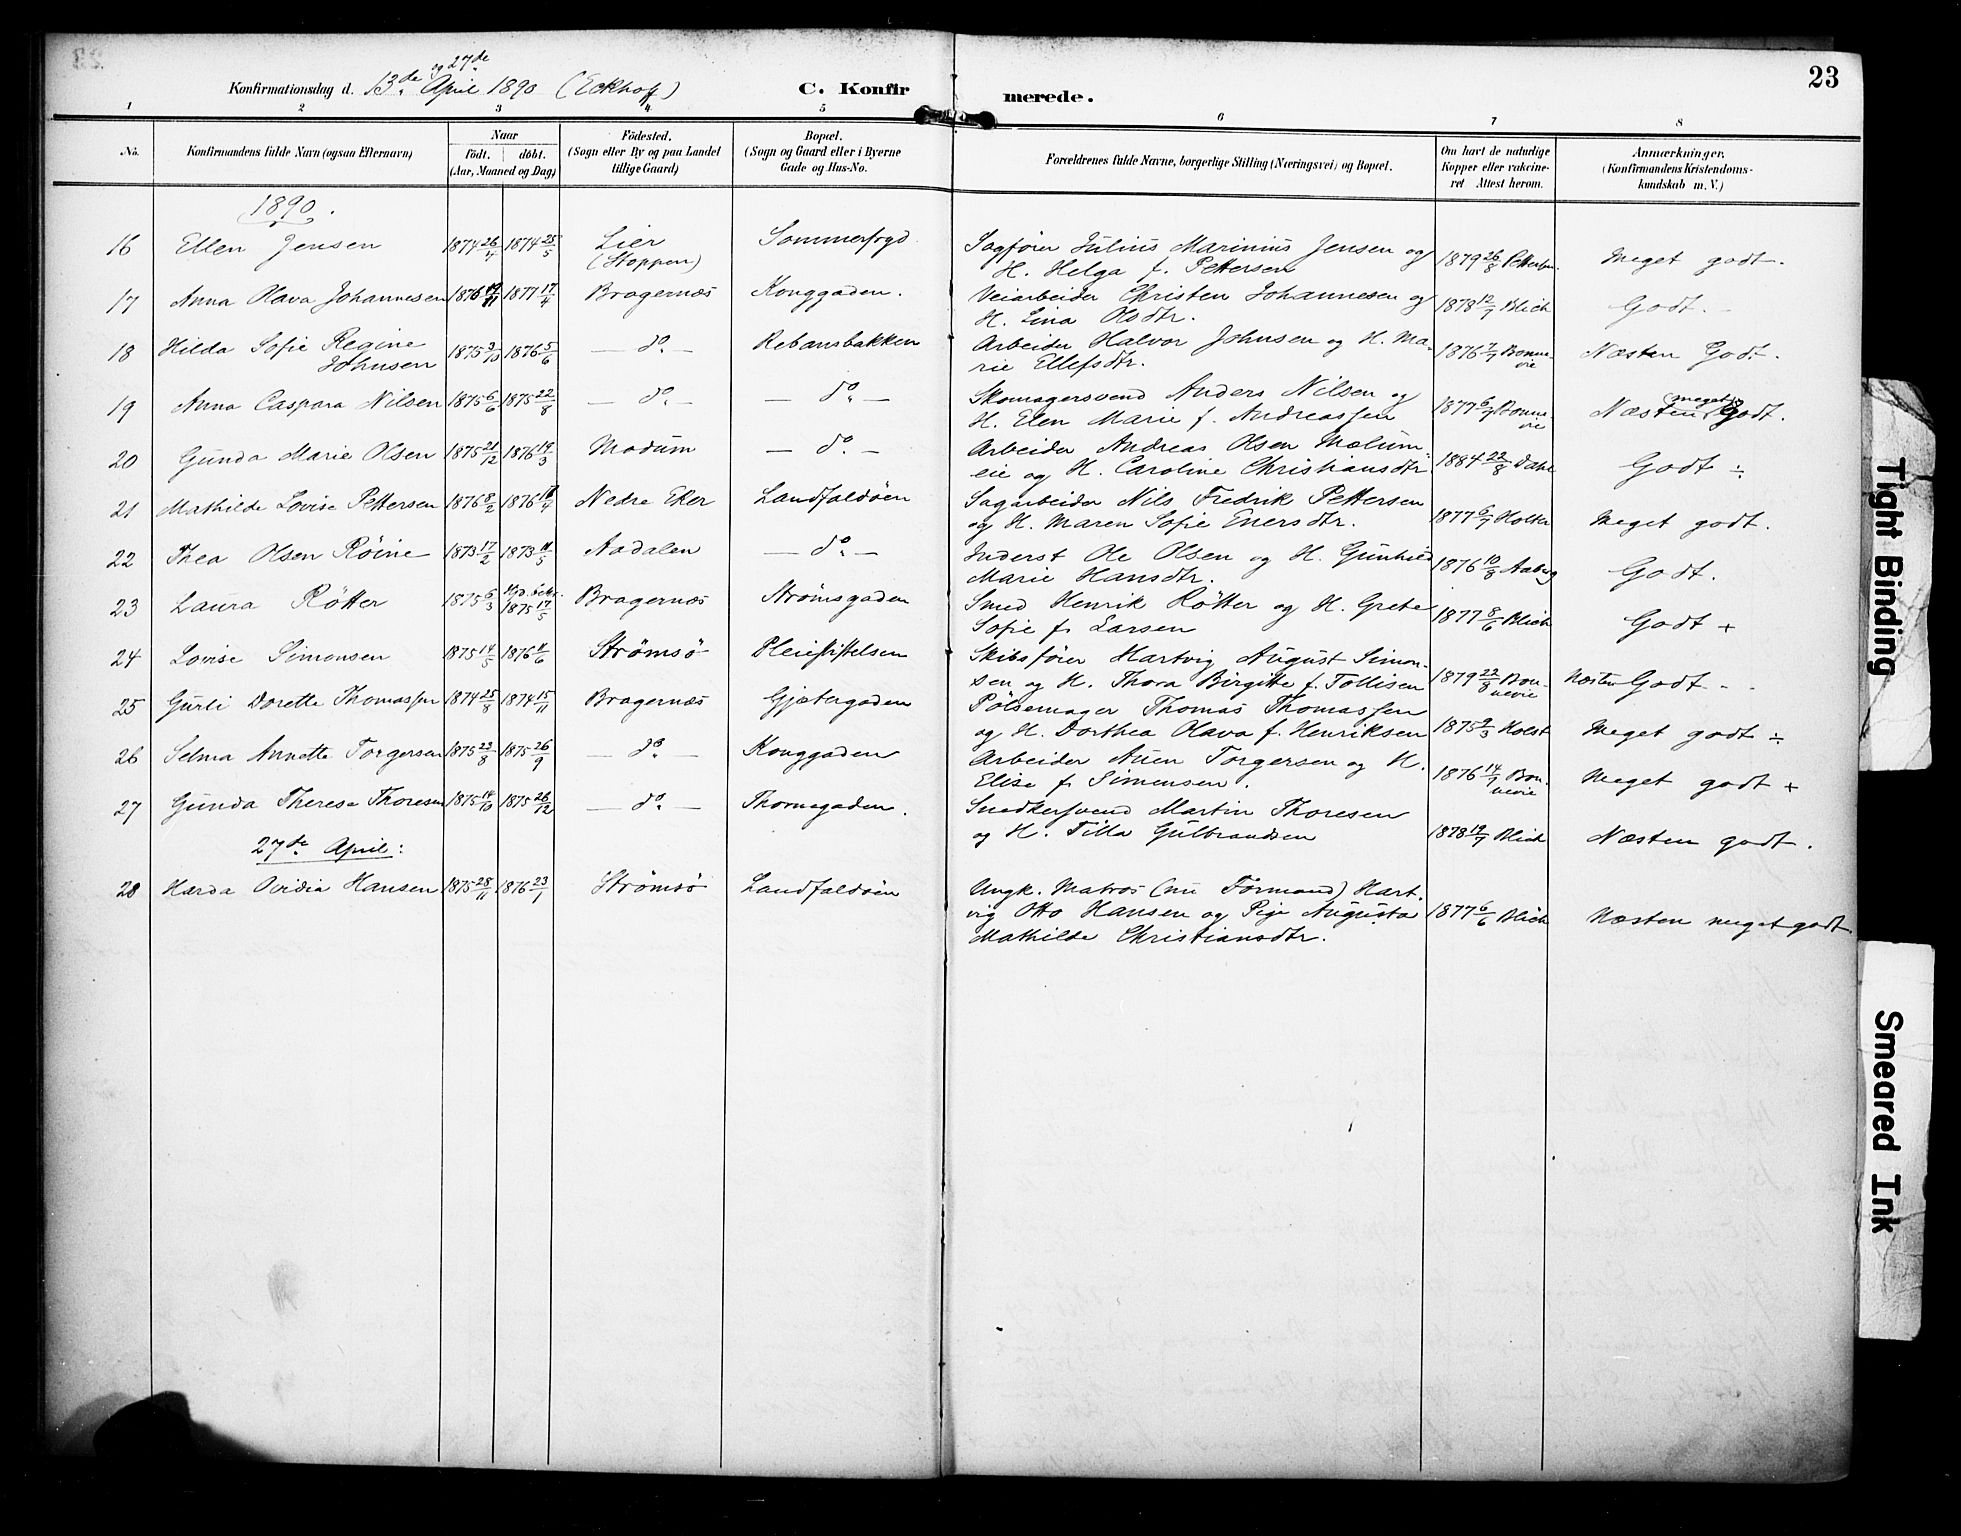 23
og 27de
Konfirmationsdag d. 13de April 1890 (Eckhoff) C. Konfirmerede.
1 2 3 4 5 6 7 8
No. Konfirmandens fulde Navn (ogsaa Efternavn) Naar födt. döbt. (Aar, Maaned og Dag) Födested. (Sogn eller By og paa Landet tillige Gaard) Bopæl. (Sogn og Gaard eller i Byerne Gade og Hus-No. Forældrenes fulde Navne, borgerlige Stilling (Næringsvei) og Bopæl. Om havt de naturlige Kopper eller vakcineret Attest herom. Anmærkninger. (Konfirmandens Kristendomskundskab m. V.)
1890.
16 Ellen Jensen 1874 26/4 1874 25/5 Lier (Stoppen) Sommerfryd Sagfører Julius Marinius Jensen og H. Helga f. Pettersen 1879 26/8 Meget godt.
17 Anna Olava Johannesen 1876 1877 17/4 Bragernæs Konggaden. Veiarbeider Christen Johannesen og H. Lina Olsdtr. 1878 12/7 Blich Godt.
18 Hilda Sofie Regine Johnsen 1875 9/10 1876 5/6 — do — Rebansbakken Arbeider Halvor Johnsen og H. Marie Ellefsdtr. 1876 7/7 Bonnevie Næsten Godt.
19 Anna Caspara Nilsen 1875 6/6 1875 22/8 — do — — do — Skomagersvend Anders Nilsen og H. Elen Marie f. Andreassen 1877 6/7 Bonnevie Næsten meget godt.
20 Gunda Marie Olsen 1875 21/12 1876 19/3 Modum — do — Arbeider Andreas Olsen Mælumeie og H. Caroline Christiansdtr 1884 22/8 Dahl Godt ÷
21 Mathilde Lovise Pettersen 1876 8/2 1876 Nedre Eker Landfaldöen Sagarbeider Nils Fredrik Pettersen og H. Maren Sofie Enersdtr. 1877 6/7 Holter Meget godt.
22 Thea Olsen Röine 1873 17/2 1873 11/5 Aadalen — do — Inderst Ole Olsen og H. Gunhild Marie Hansdtr. 1876 10/8 Aaberg Godt.
23 Laura Rötter 1875 6/3 1875 17/5 Bragernæs Strömsgaden Smed Henrik Rötter og H. Grete Sofie f. Larsen 1877 8/6 Blich Godt +
24 Lovise Simonsen 1875 14/5 1876 11/6 Strömsö Pleiestiftelsen Skibsförer Hartvig August Simonsen og H. Thora Birgitte f. Tollisen 1879 22/8 Bonnevie Næsten Godt
25 Gurli Dorette Thomassen 1874 25/8 1874 15/11 Bragernæs Gjætergaden Pölsemager Thomas Thomassen og H. Dorthea Olava f. Henriksen 1875 9/3 Holst Meget godt ÷
26 Selma Annette Torgersen 1875 23/8 1875 26/9 — do — Konggaden Arbeider Auen Torgersen og H. Elise f. Simensen. 1876 14/7 Bonnevie Meget godt +
27 Gunda Therese Thoresen 1875 14/10 1875 26/12 — do — Thornegaden. Snedkersvend Martin Thoresen og H. Tilla Gulbrandsen 1878 19/7 Blich Næsten godt.
27de April:
28 Harda Ovidia Hansen 1875 28/11 1876 23/1 Strömsö Landfaldöen Ungk. Matros (nu Formand) Hartvig Otto Hansen og Pige Augusta Mathilde Christiansdtr. 1877 6/6 Blich Næsten meget godt.
Tight Binding
Smeared Ink